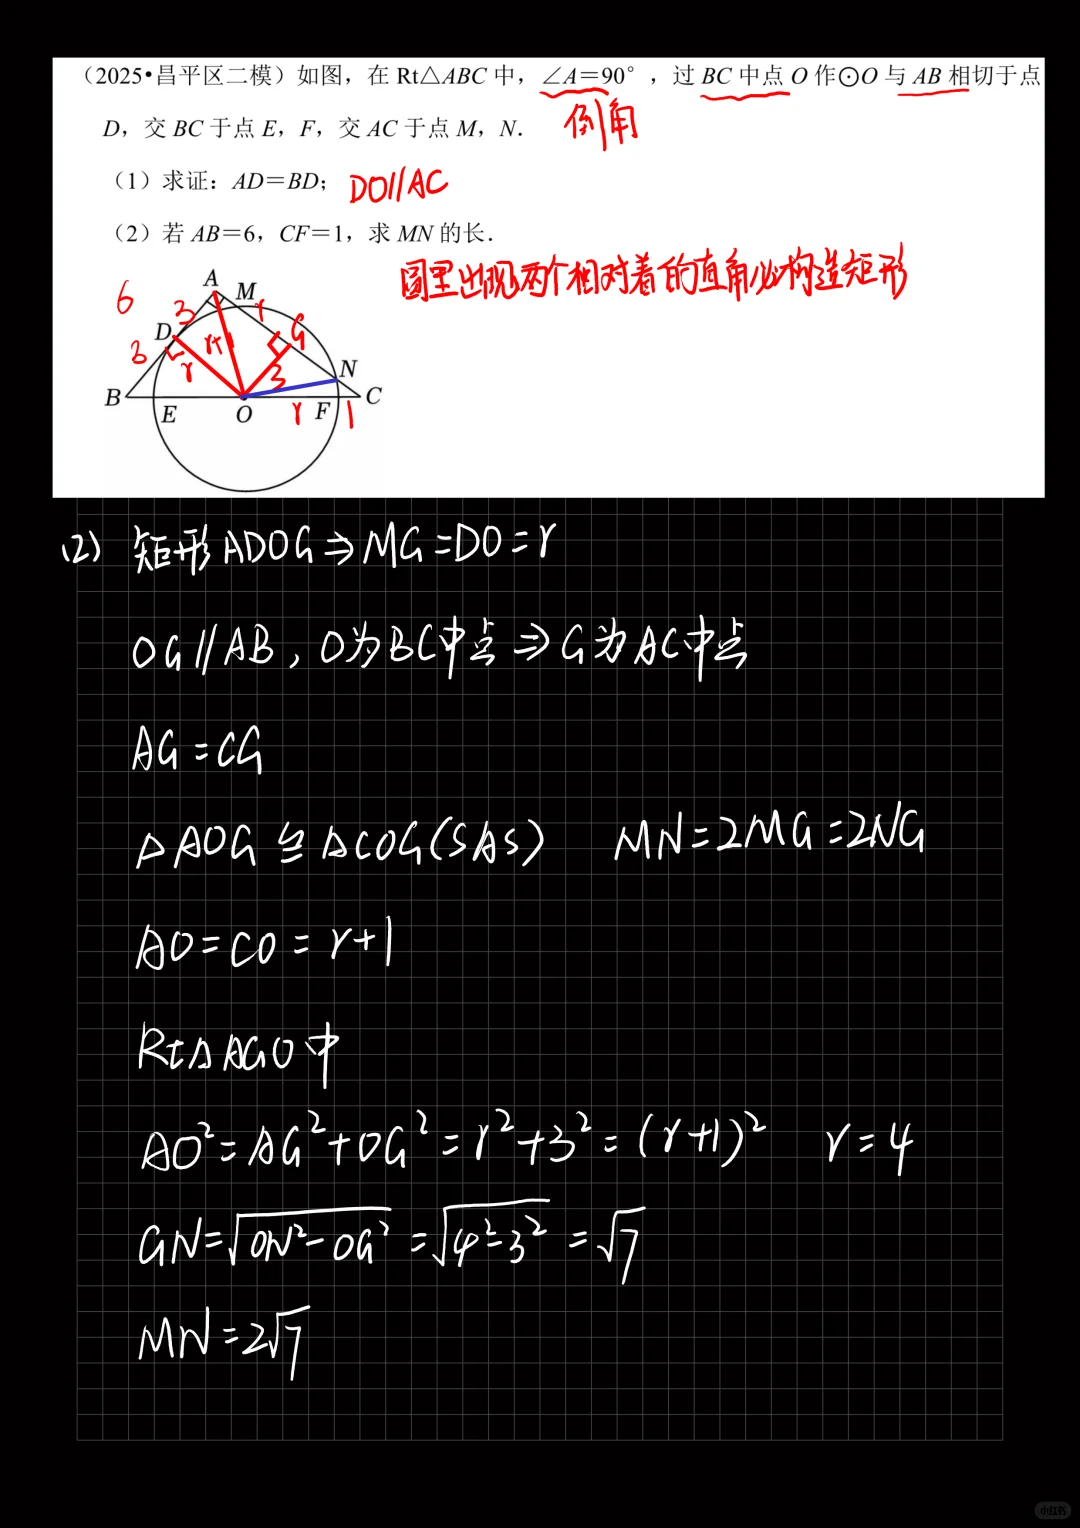 （2025•昌平区二模）如图，在 Rt△ABC 中，∠A＝90°，过 BC 中点 O 作⊙O 与 AB 相切于点
D，交 BC 于点 E，F，交 AC 于点 M，N．
倒角
（1）求证：AD＝BD；
DO∥AC
（2）若 AB＝6，CF＝1，求 MN 的长．
圆里出现两个相对着的直角必构造矩形
6
A
M
3
r
D
r+1
G
3
r
3
N
B
E
O
r
F
1
C
(2) 矩形ADOG⇒MG=DO=r
OG∥AB，O为BC中点⇒G为AC中点
AG=CG
△AOG≌△COG(SAS) MN=2MG=2NG
AO=CO=r+1
Rt△AGO中
AO²=AG²+OG²=r²+3²=(r+1)² r=4
GN=√(ON²-OG²)=√(4²-3²)=√7
MN=2√7
小红书